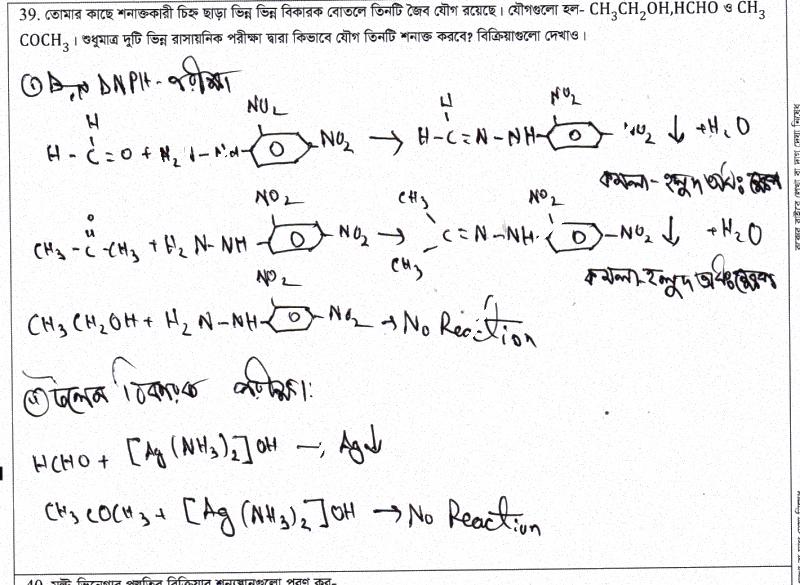 39. তোমার কাছে শনাক্তকারী চিহ্ন ছাড়া ভিন্ন ভিন্ন বিকারক বোতলে তিনটি জৈব যৌগ রয়েছে। যৌগগুলো হল- CH₃CH₂OH,HCHO ও CH₃
COCH₃। শুধুমাত্র দুটি ভিন্ন রাসায়নিক পরীক্ষা দ্বারা কিভাবে যৌগ তিনটি শনাক্ত করবে? বিক্রিয়াগুলো দেখাও।
① DNPH- পরীক্ষা
H
NO₂
H
NO₂
H - C = O + H₂N-NH- NO₂ → H-C=N-NH- NO₂ ↓ +H₂O
কমলা-হলুদ অধঃক্ষেপ
O
NO₂
CH₃
NO₂
CH₃ - C - CH₃ + H₂N-NH NO₂ → C=N-NH- NO₂ ↓ +H₂O
CH₃
কমলা-হলুদ অধঃক্ষেপ
NO₂
CH₃CH₂OH + H₂N-NH NO₂ → No Reaction
② টলেন বিকারক পরীক্ষা:
HCHO + [Ag(NH₃)₂]OH → Ag↓
CH₃COCH₃ + [Ag(NH₃)₂]OH → No Reaction